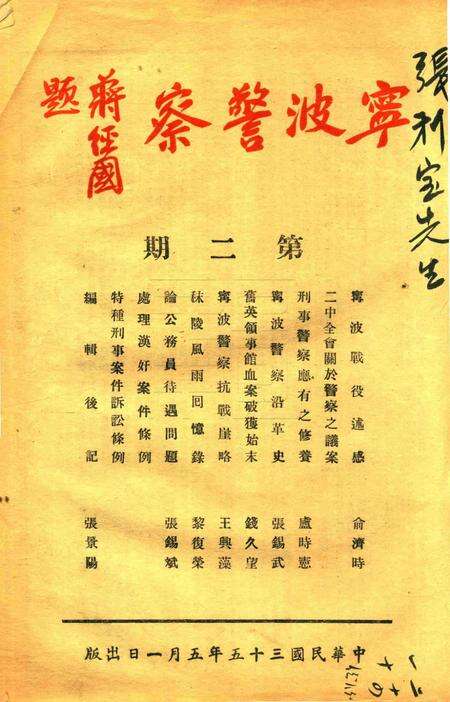 張利宝先生
寧波警察
蔣經國
題
第二期
寧波戰役述感 俞濟時
二中全會關於警察之議案
刑事警察應有之修養 盧時憲
寧波警察沿革史 張錫武
舊英領事館血案破獲始末 錢久望
寧波警察抗戰崖略 王興藻
秣陵風雨回憶錄 黎復榮
論公務員待遇問題 張錫斌
處理漢奸案件條例
特種刑事案件訴訟條例
編輯後記 張景陽
中華民國三十五年五月一日出版